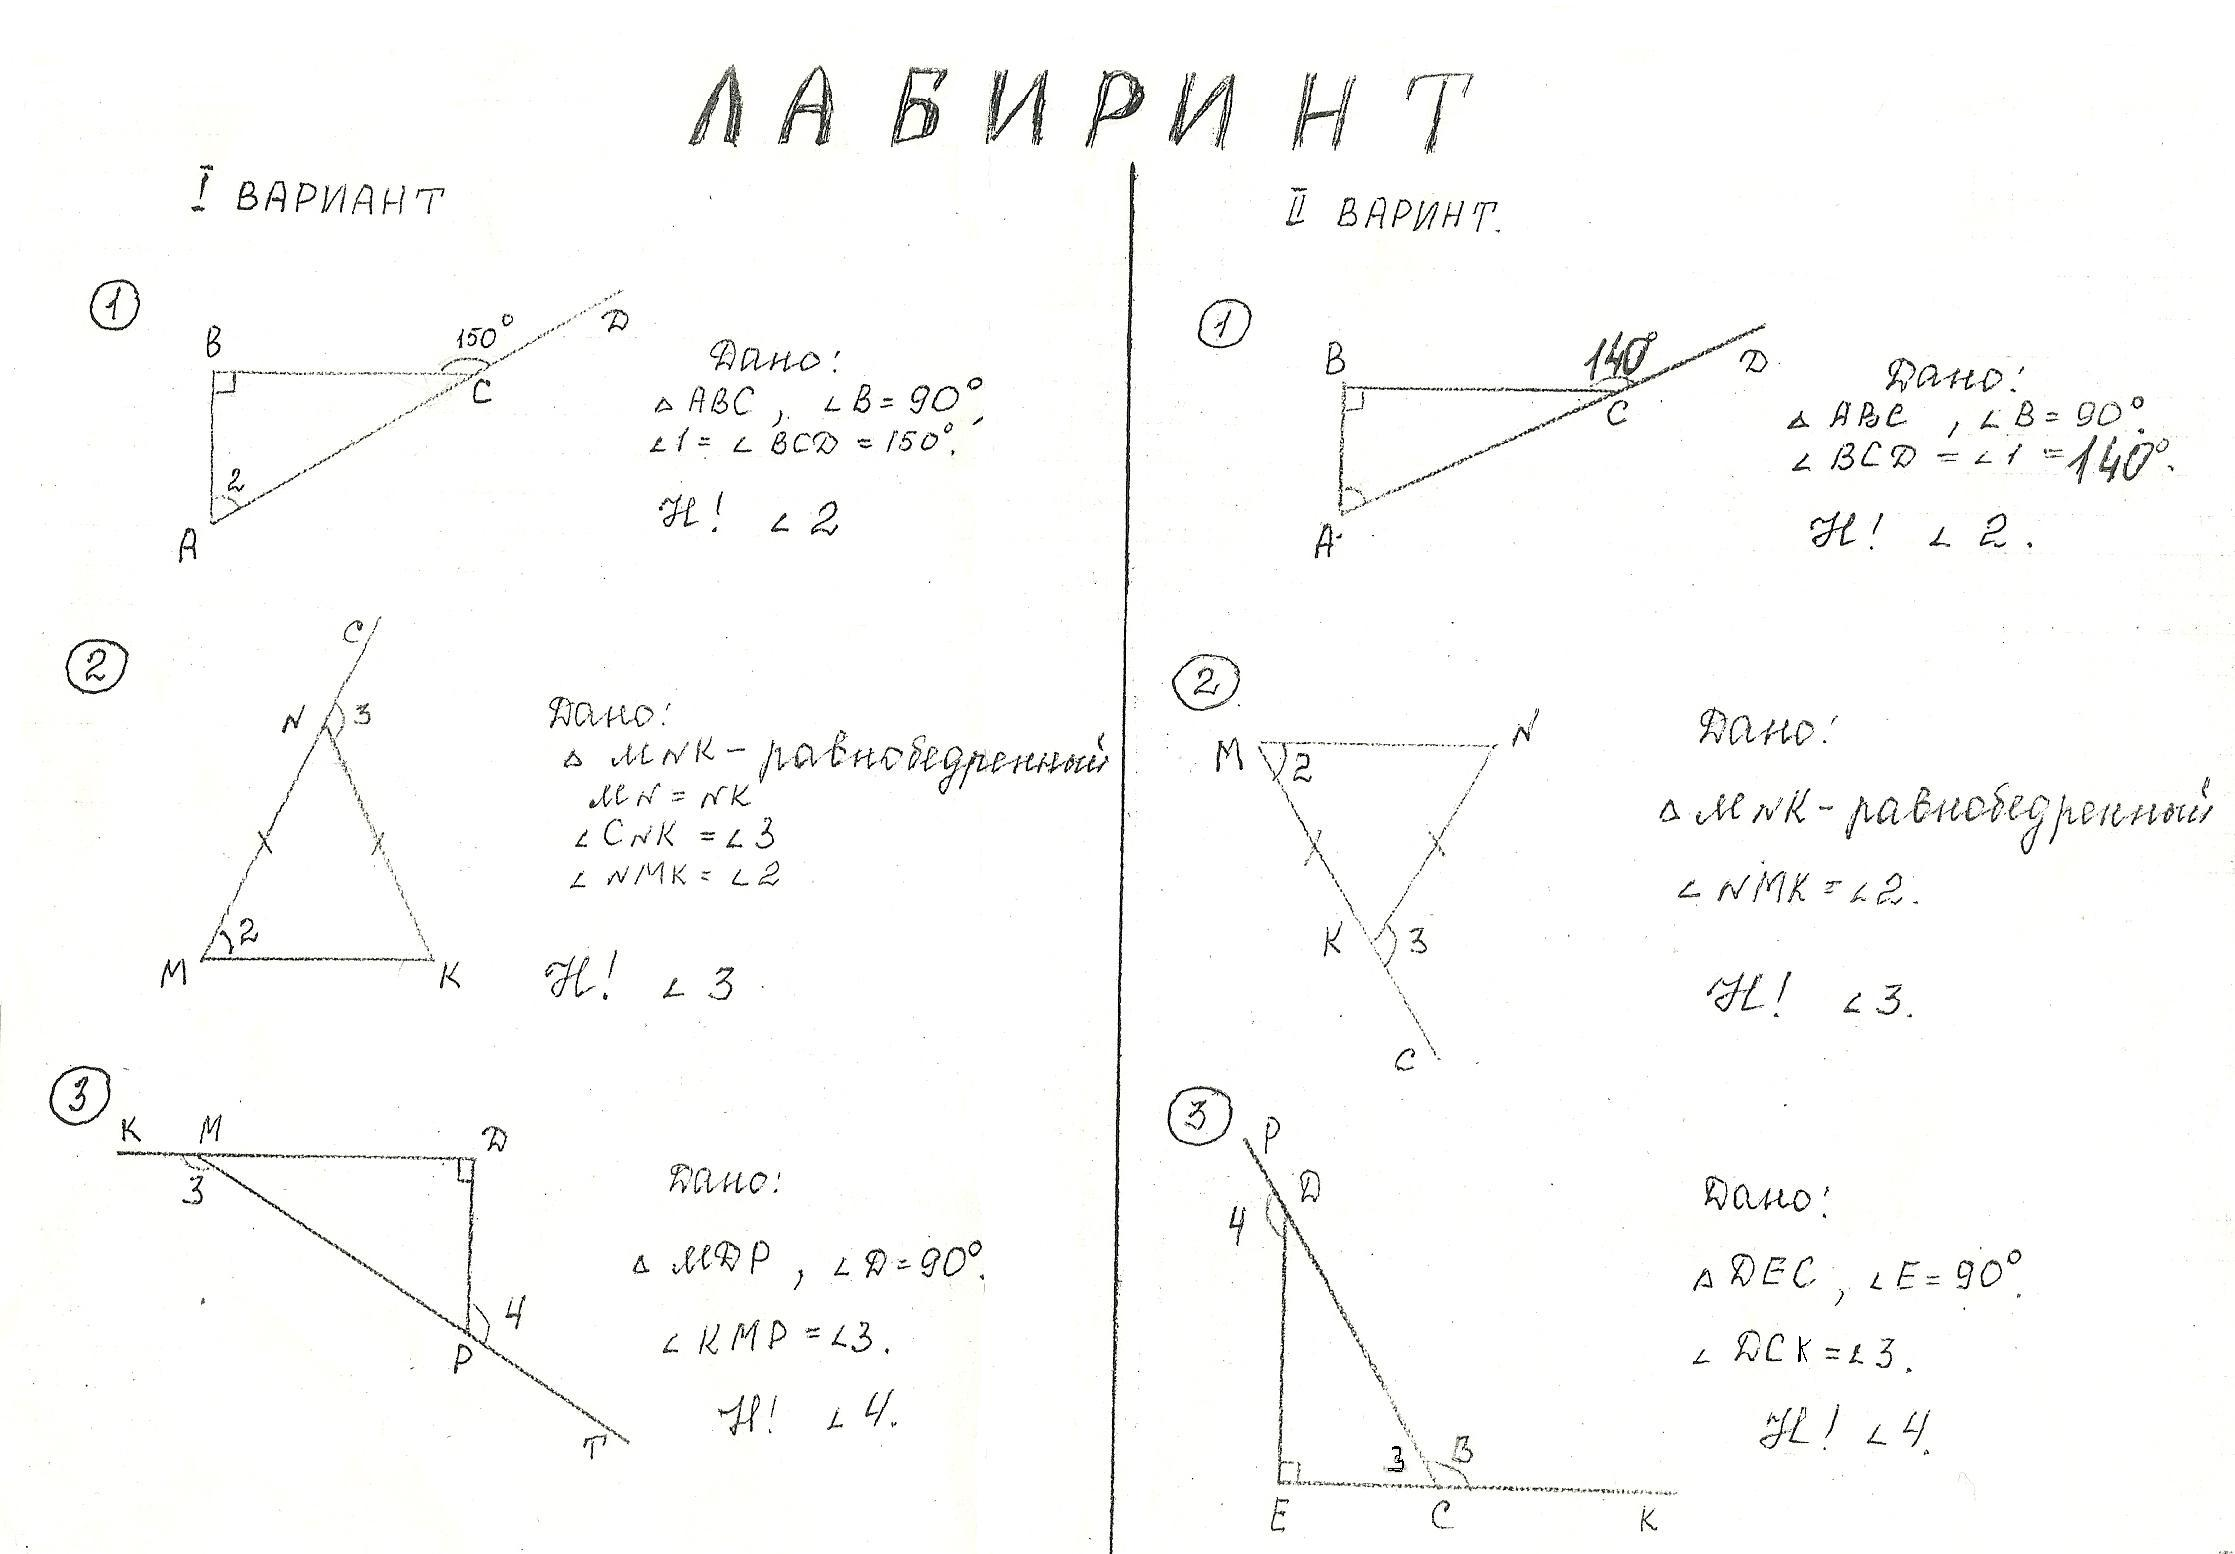 ЛАБИРИНТ
I ВАРИАНТ
1
B
150°
C
D
2
A
Дано:
△ ABC, ∠B = 90°,
∠1 = ∠BCD = 150°.
Н! ∠2
2
C
N
3
2
M
K
Дано:
△ MNK – равнобедренный
MN = NK
∠CNK = ∠3
∠NMK = ∠2
Н! ∠3
3
K
M
D
3
4
P
T
Дано:
△ MDP, ∠D = 90°.
∠KMP = ∠3.
Н! ∠4.
II ВАРИНТ.
1
B
140°
C
D
A
Дано:
△ ABC, ∠B = 90°.
∠BCD = ∠1 = 140°.
Н! ∠2.
2
M
N
2
K
3
C
Дано:
△ MNK – равнобедренный
∠NMK = ∠2.
Н! ∠3.
3
P
D
4
3
B
E
C
K
Дано:
△ DEC, ∠E = 90°.
∠DCK = ∠3.
Н! ∠4.